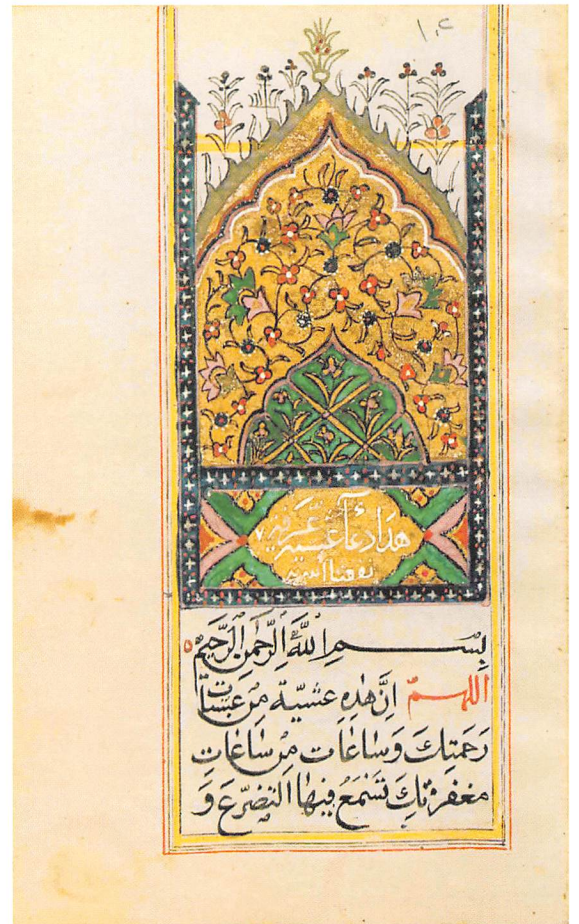 ١٠٤
هذا دعاء عشية عرفة
بِسْمِ اللّٰهِ الرَّحْمٰنِ الرَّحِيمِ
اللّٰهمّ اِنَّ هٰذِهِ عشيّة مِنْ عَشيات
رَحمتِكَ وَسٰاعٰات مِنْ سٰاعٰاتِ
مغفرتِكَ تَسْمَعُ فِيهٰا التضرّعَ وَ